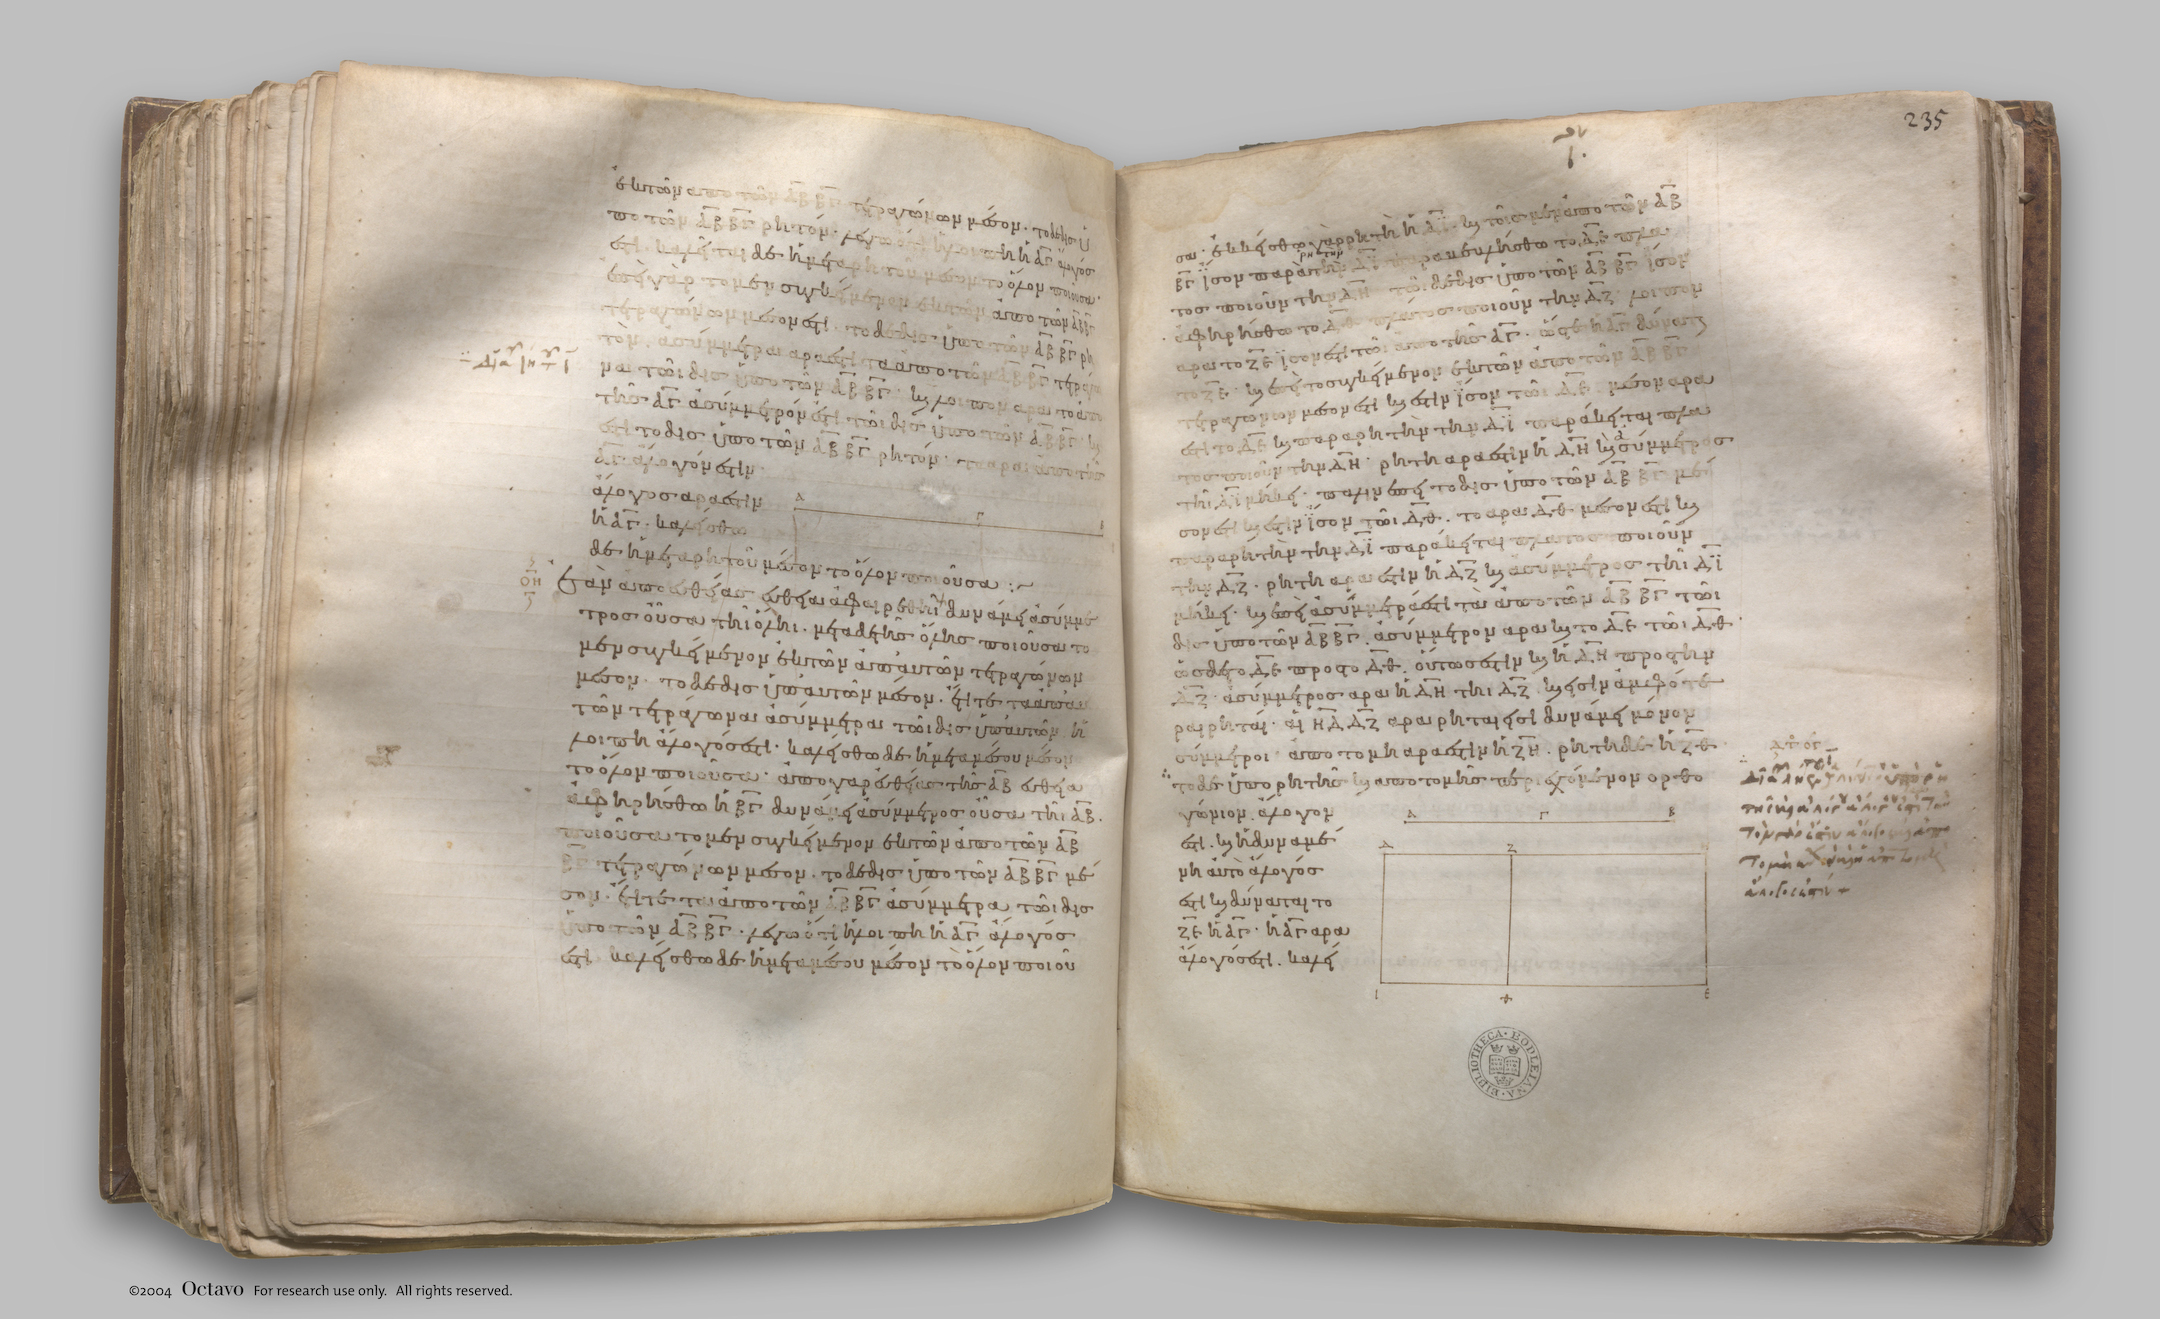 ἐκ τῶν ἀπὸ τῶν ΑΒ ΒΓ τετραγώνων μέσον. τὸ δὲ δὶς ὑ
πὸ τῶν ΑΒ ΒΓ ῥητόν. λέγω ὅτι ἡ λοιπὴ ἡ ΑΓ ἄλογός
ἐστι. καλεῖται δὲ ἡ μετὰ ῥητοῦ μέσον τὸ ὅλον ποιοῦσα.
ἐπεὶ γὰρ τὸ μὲν συγκείμενον ἐκ τῶν ἀπὸ τῶν ΑΒ ΒΓ
τετραγώνων μέσον ἐστί. τὸ δὲ δὶς ὑπὸ τῶν ΑΒ ΒΓ ῥη
τόν. ἀσύμμετρα ἄρα ἐστὶ τὰ ἀπὸ τῶν ΑΒ ΒΓ τετράγω
να τῶι δὶς ὑπὸ τῶν ΑΒ ΒΓ. καὶ λοιπὸν ἄρα τὸ ἀπὸ
τῆς ΑΓ ἀσύμμετρόν ἐστι τῶι δὶς ὑπὸ τῶν ΑΒ ΒΓ. καὶ
ἐστὶ τὸ δὶς ὑπὸ τῶν ΑΒ ΒΓ ῥητόν. τὸ ἄρα ἀπὸ τῆς
ΑΓ ἄλογόν ἐστιν.
ἄλογος ἄρα ἐστὶν
ἡ ΑΓ. καλείσθω
δὲ ἡ μετὰ ῥητοῦ μέσον τὸ ὅλον ποιοῦσα :~
Α Γ Β
ΟΗ
Ἐὰν ἀπὸ εὐθείας εὐθεῖα ἀφαιρεθῆι δυνάμει ἀσύμμε
τρος οὖσα τῆι ὅληι. μετὰ δὲ τῆς ὅλης ποιοῦσα τὸ
μὲν συγκείμενον ἐκ τῶν ἀπ' αὐτῶν τετραγώνων
μέσον. τὸ δὲ δὶς ὑπ' αὐτῶν μέσον. ἔτι τε τὰ ἀπ' αὐ
τῶν τετράγωνα ἀσύμμετρα τῶι δὶς ὑπ' αὐτῶν. ἡ
λοιπὴ ἄλογός ἐστι. καλείσθω δὲ ἡ μετὰ μέσου μέσον
τὸ ὅλον ποιοῦσα. ἀπὸ γὰρ εὐθείας τῆς ΑΒ εὐθεῖα
ἀφηρήσθω ἡ ΒΓ δυνάμει ἀσύμμετρος οὖσα τῆι ΑΒ.
ποιοῦσα τὸ μὲν συγκείμενον ἐκ τῶν ἀπὸ τῶν ΑΒ
ΒΓ τετραγώνων μέσον. τὸ δὲ δὶς ὑπὸ τῶν ΑΒ ΒΓ μέ
σον. ἔτι τε τὰ ἀπὸ τῶν ΑΒ ΒΓ ἀσύμμετρα τῶι δὶς
ὑπὸ τῶν ΑΒ ΒΓ. λέγω ὅτι ἡ λοιπὴ ἡ ΑΓ ἄλογός
ἐστι. καλείσθω δὲ ἡ μετὰ μέσου μέσον τὸ ὅλον ποιοῦ
235
σα. ἐκκείσθω γὰρ ῥητὴ ἡ ΔΙ. καὶ τοῖς μὲν ἀπὸ τῶν ΑΒ
ΒΓ ἴσον παρὰ τὴν ΔΙ παραβεβλήσθω τὸ ΔΕ πλά
τος ποιοῦν τὴν ΔΗ τῶι δὲ δὶς ὑπὸ τῶν ΑΒ ΒΓ ἴσον
ἀφηρήσθω τὸ ΔΘ πλάτος ποιοῦν τὴν ΔΖ. λοιπὸν
ἄρα τὸ ΖΕ ἴσον ἐστὶ τῶι ἀπὸ τῆς ΑΓ. ὥστε ἡ ΑΓ δύναται
τὸ ΖΕ. καὶ ἐπεὶ τὸ συγκείμενον ἐκ τῶν ἀπὸ τῶν ΑΒ ΒΓ
τετραγώνων μέσον ἐστὶ καὶ ἐστὶν ἴσον τῶι ΔΕ. μέσον ἄρα
ἐστὶ τὸ ΔΕ καὶ παρὰ ῥητὴν τὴν ΔΙ παράκειται πλά
τος ποιοῦν τὴν ΔΗ. ῥητὴ ἄρα ἐστὶν ἡ ΔΗ καὶ ἀσύμμετρος
τῆι ΔΙ μήκει. πάλιν ἐπεὶ τὸ δὶς ὑπὸ τῶν ΑΒ ΒΓ μέ
σον ἐστὶ καὶ ἐστὶν ἴσον τῶι ΔΘ. τὸ ἄρα ΔΘ μέσον ἐστὶ καὶ
παρὰ ῥητὴν τὴν ΔΙ παράκειται πλάτος ποιοῦν
τὴν ΔΖ. ῥητὴ ἄρα ἐστὶν ἡ ΔΖ καὶ ἀσύμμετρος τῆι ΔΙ
μήκει. καὶ ἐπεὶ ἀσύμμετρά ἐστι τὰ ἀπὸ τῶν ΑΒ ΒΓ τῶι
δὶς ὑπὸ τῶν ΑΒ ΒΓ. ἀσύμμετρον ἄρα καὶ τὸ ΔΕ τῶι ΔΘ.
ὡς δὲ τὸ ΔΕ πρὸς τὸ ΔΘ. οὕτως ἐστὶν καὶ ἡ ΔΗ πρὸς τὴν
ΔΖ. ἀσύμμετρος ἄρα ἡ ΔΗ τῆι ΔΖ. καὶ εἰσὶν ἀμφότε
ραι ῥηταί. αἱ ΗΔ ΔΖ ἄρα ῥηταί εἰσι δυνάμει μόνον
σύμμετροι. ἀποτομὴ ἄρα ἐστὶν ἡ ΖΗ. ῥητὴ δὲ ἡ ΖΘ.
τὸ δὲ ὑπὸ ῥητῆς καὶ ἀποτομῆς περιεχόμενον ὀρθο
γώνιον ἄλογον
ἐστι. καὶ ἡ δυναμέ
νη αὐτὸ ἄλογός
ἐστι καὶ δύναται τὸ
ΖΕ ἡ ΑΓ. ἡ ΑΓ ἄρα
ἄλογός ἐστι. καλεί
Α Γ Β
Δ Ζ
Ι Θ Ε
BIBLIOTHECA · BODLEIANA
©2004 Octavo For research use only. All rights reserved.